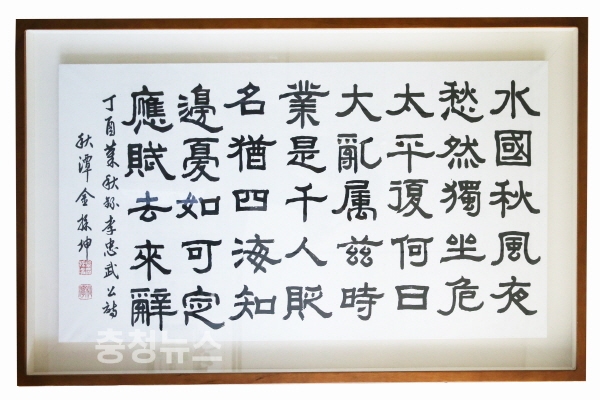 水國秋風夜
愁然獨坐危
太平復何日
大亂属茲時
業是千人貶
名猶四海知
邊憂如可定
應賦去來辭
丁酉 秋 李忠武公詩
秋潭 金 坤
충청뉴스